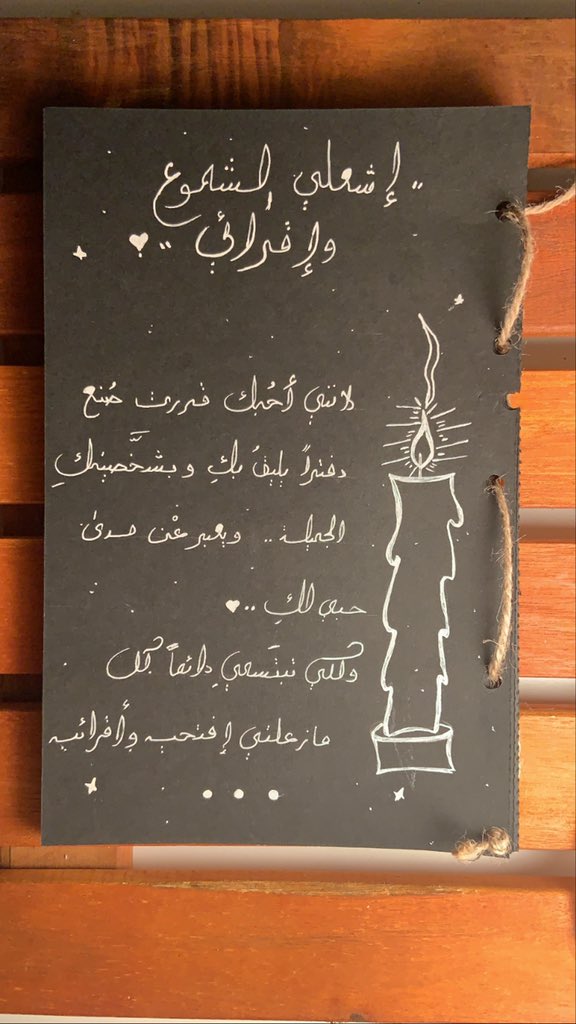 .. إشعلي الشموع
وإقرائي ..
لانني أحُبك قررت صُنع
دفتراً يليقُ بكِ و بشخَّصيتكِ
الجميلة .. ويعبر عْن مدى
حبي لكِ ..
ولكي تبتَسمي دِائماً كل
مازعلتي إفتحيه وأقرائيه